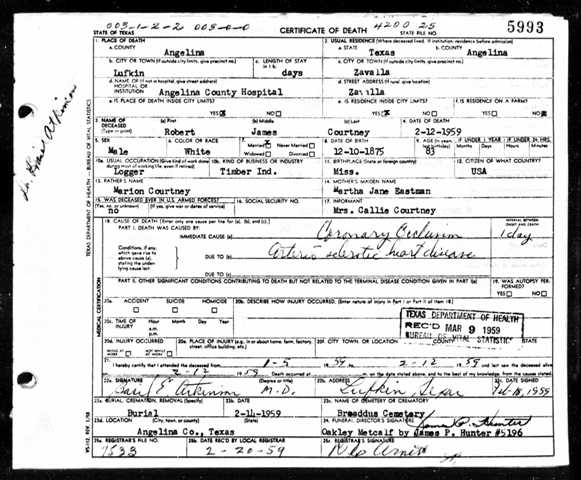 003-1-2-2 003-0-0
4200 25
5993
STATE OF TEXAS
CERTIFICATE OF DEATH
STATE FILE NO.
1. PLACE OF DEATH
2. USUAL RESIDENCE (Where deceased lived. If institution: residence before admission)
a. COUNTY
Angelina
a. STATE
Texas
b. COUNTY
Angelina
b. CITY OR TOWN (If outside city limits, give precinct no.)
Lufkin
c. LENGTH OF STAY in 1 b.
days
c. CITY OR TOWN (If outside city limits, give precinct no.)
Zavalla
d. NAME OF (If not in hospital, give street address)
HOSPITAL OR INSTITUTION
Angelina County Hospital
d. STREET ADDRESS (If rural, give location)
Zavalla
e. IS PLACE OF DEATH INSIDE CITY LIMITS?
YES NO
e. IS RESIDENCE INSIDE CITY LIMITS?
YES NO
f. IS RESIDENCE ON A FARM?
YES NO
3. NAME OF DECEASED (Type or print)
(a) First
Robert
(b) Middle
James
(c) Last
Courtney
4. DATE OF DEATH
2-12-1959
5. SEX
Male
6. COLOR OR RACE
White
7. Married Never Married
Widowed Divorced
8. DATE OF BIRTH
12-10-1875
9. AGE (In years last birthday)
83
IF UNDER 1 YEAR
IF UNDER 24 HRS.
10a. USUAL OCCUPATION (Give kind of work done during most of working life, even if retired)
Logger
10b. KIND OF BUSINESS OR INDUSTRY
Timber Ind.
11. BIRTHPLACE (State or foreign country)
Miss.
12. CITIZEN OF WHAT COUNTRY?
USA
13. FATHER'S NAME
Marion Courtney
14. MOTHER'S MAIDEN NAME
Martha Jane Eastman
15. WAS DECEASED EVER IN U.S. ARMED FORCES?
(Yes, no, or unknown) (If yes, give war or dates of service)
no
16. SOCIAL SECURITY NO.
17. INFORMANT
Mrs. Callie Courtney
18. CAUSE OF DEATH [Enter only one cause per line for (a), (b), and (c).]
INTERVAL BETWEEN ONSET AND DEATH
PART I. DEATH WAS CAUSED BY:
IMMEDIATE CAUSE (a)
Coronary Occlusion
1 day
Conditions, if any, which gave rise to above cause (a), stating the underlying cause last
DUE TO (b)
Arterio sclerotic heart disease
DUE TO (c)
PART II. OTHER SIGNIFICANT CONDITIONS CONTRIBUTING TO DEATH BUT NOT RELATED TO THE TERMINAL DISEASE CONDITION GIVEN IN PART I (a)
19. WAS AUTOPSY PERFORMED?
YES NO
20a. ACCIDENT SUICIDE HOMICIDE
20b. DESCRIBE HOW INJURY OCCURRED. (Enter nature of injury in Part I or Part II of item 18.)
20c. TIME OF INJURY
Hour Month Day Year
a.m.
p.m.
TEXAS DEPARTMENT OF HEALTH
REC'D MAR 9 1959
BUREAU OF VITAL STATISTICS
20d. INJURY OCCURRED
20e. PLACE OF INJURY (e.g. in or about home, farm, factory, street, office building, etc.)
20f. CITY, TOWN, OR LOCATION
COUNTY
STATE
21. I hereby certify that I attended the deceased from 1-5 59 to 2-12 59 and last saw the deceased alive
2-12 59 Death occurred at m. on the date stated above, and to the best of my knowledge, from the causes stated.
22a. SIGNATURE
Atkinson
(Degree or title)
M.D.
22b. ADDRESS
Lufkin Texas
22c. DATE SIGNED
Feb-18, 1959
23a. BURIAL, CREMATION, REMOVAL (Specify)
Burial
23b. DATE
2-14-1959
23c. NAME OF CEMETERY OR CREMATORY
Broaddus Cemetery
23d. LOCATION (City, town, or county) (State)
Angelina Co., Texas
24. FUNERAL DIRECTOR'S SIGNATURE
James P. Hunter
Oakley Metcalf by James P. Hunter #5196
25a. REGISTRAR'S FILE NO.
25b. DATE REC'D BY LOCAL REGISTRAR
2-20-59
25c. REGISTRAR'S SIGNATURE
TEXAS DEPARTMENT OF HEALTH — BUREAU OF VITAL STATISTICS
MEDICAL CERTIFICATION
VS-112 REV. 1/58
Atkinson